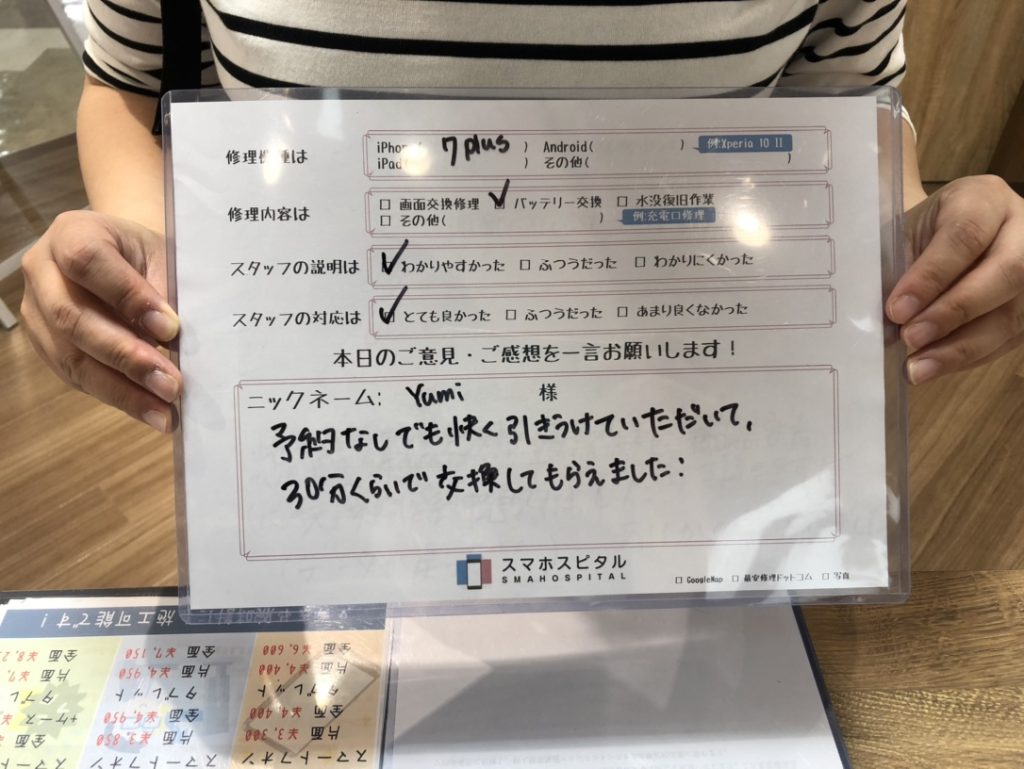 修理機種は
iPhone( 7 plus ) Android( ) 例:Xperia 10 II
iPad( ) その他( )
修理内容は
□ 画面交換修理 ✓ バッテリー交換 □ 水没復旧作業
□ その他( ) 例:充電口修理
スタッフの説明は ✓ わかりやすかった □ ふつうだった □ わかりにくかった
スタッフの対応は ✓ とても良かった □ ふつうだった □ あまり良くなかった
本日のご意見・ご感想を一言お願いします!
ニックネーム: Yumi 様
予約なしでも快く引きうけていただいて,
30分くらいで交換してもらえました:
スマホスピタル
SMAHOSPITAL
□ GoogleMap □ 最安修理ドットコム □ 写真
施工可能です!
スマートフォン
片面 ¥3,300
全面 ¥4,400
タブレット
片面 ¥4,400
全面 ¥6,600
スマートフォン
片面 ¥3,850
全面 ¥4,950
タブレット
片面 ¥4,950
全面 ¥7,150
スマートフォン
全面
+ケース
タブレット
片面
全面